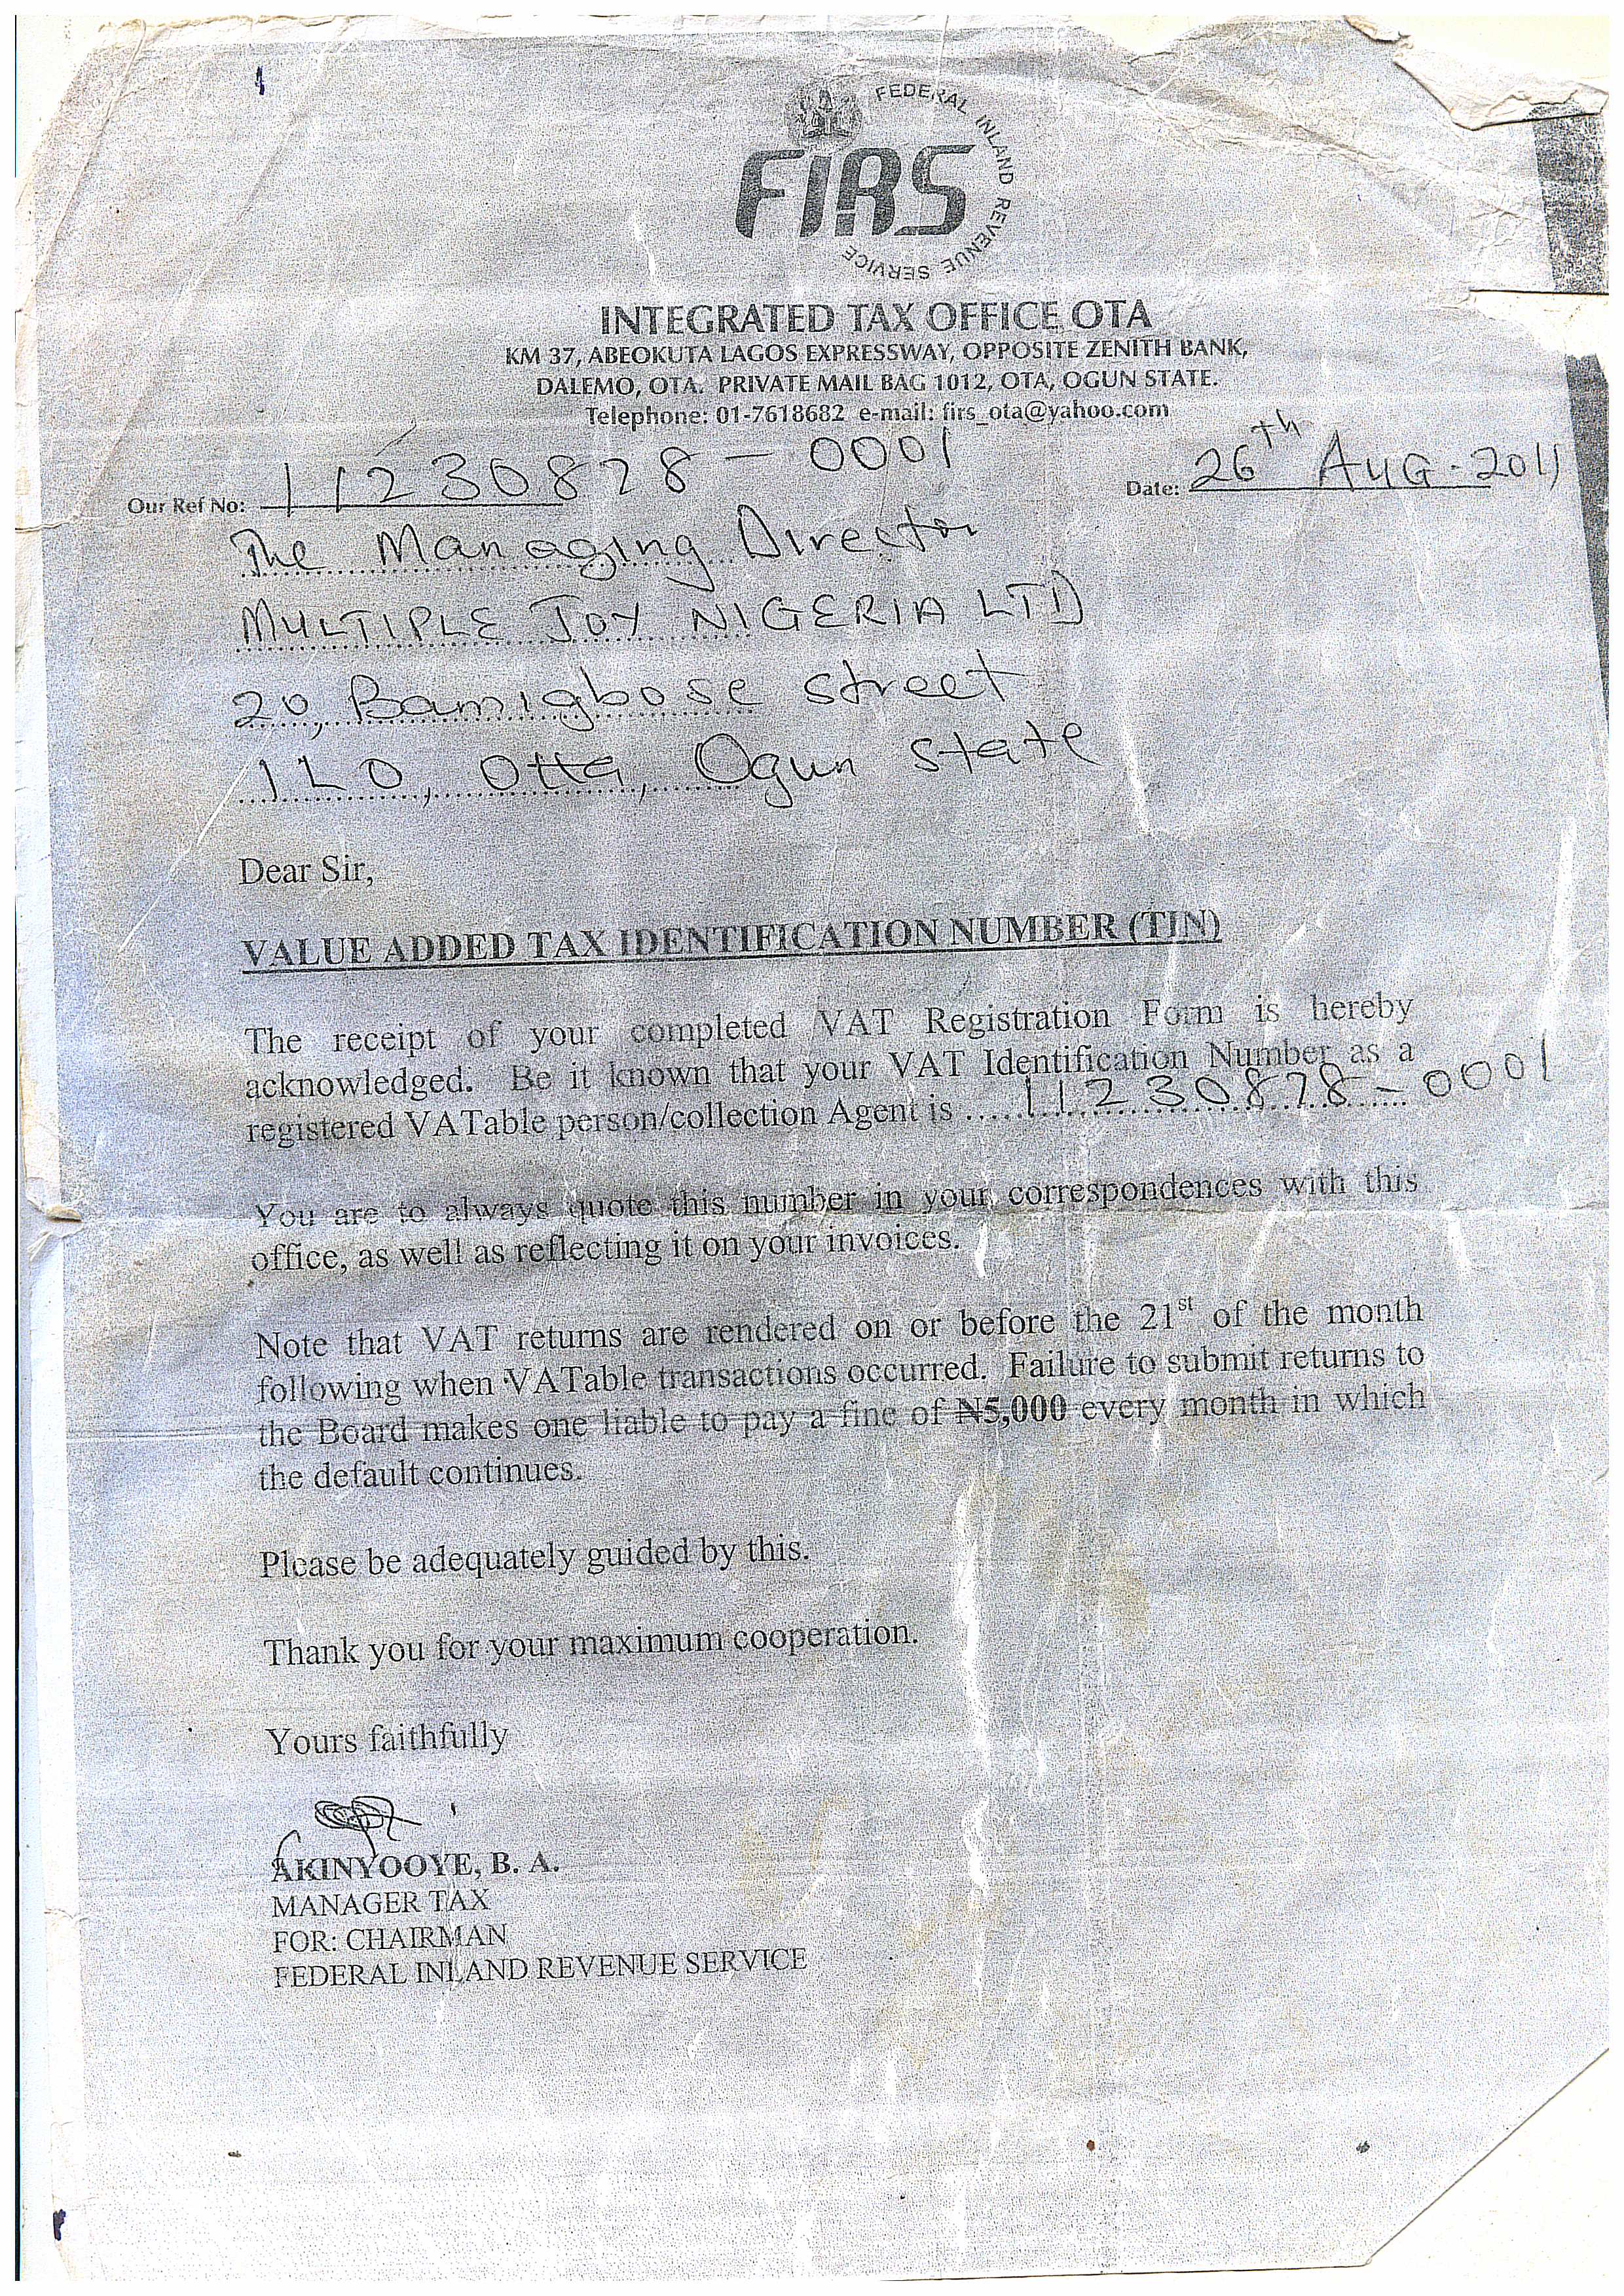 FIRS
FEDERAL INLAND REVENUE SERVICE
INTEGRATED TAX OFFICE OTA
KM 37, ABEOKUTA LAGOS EXPRESSWAY, OPPOSITE ZENITH BANK,
DALEMO, OTA. PRIVATE MAIL BAG 1012, OTA, OGUN STATE.
Telephone: 01-7618682 e-mail: firs_ota@yahoo.com
Our Ref No: 11230878-0001 Date: 26th AUG. 2011
The Managing Director
MULTIPLE JOY NIGERIA LTD
20, Bamigbose street
ILO, Otta, Ogun state
Dear Sir,
VALUE ADDED TAX IDENTIFICATION NUMBER (TIN)
The receipt of your completed VAT Registration Form is hereby
acknowledged. Be it known that your VAT Identification Number as a
registered VATable person/collection Agent is ..... 11230878-0001
You are to always quote this number in your correspondences with this
office, as well as reflecting it on your invoices.
Note that VAT returns are rendered on or before the 21st of the month
following when VATable transactions occurred. Failure to submit returns to
the Board makes one liable to pay a fine of ₦5,000 every month in which
the default continues.
Please be adequately guided by this.
Thank you for your maximum cooperation.
Yours faithfully
AKINYOOYE, B. A.
MANAGER TAX
FOR: CHAIRMAN
FEDERAL INLAND REVENUE SERVICE